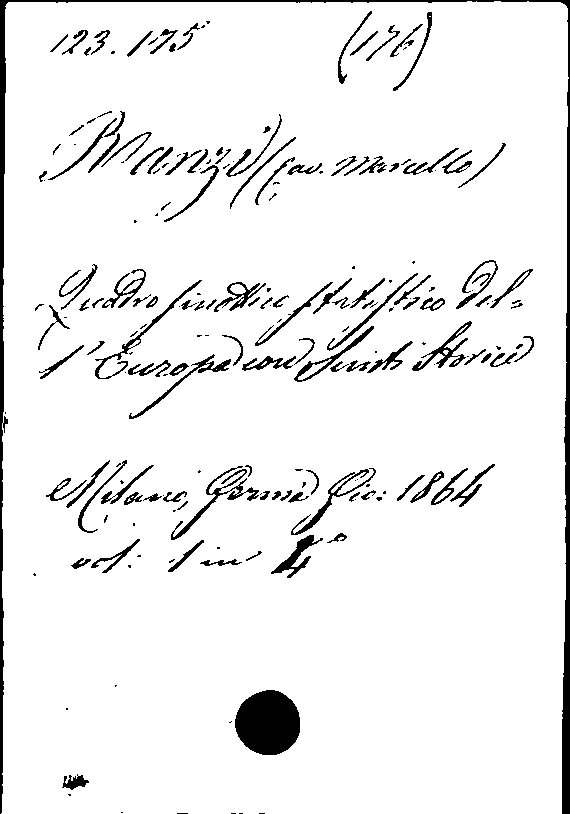 123.175 (176)
Ranzi (Cav. Marcello)
Quadro sinottico statistico del=
l'Europa con Sunti Storici
Milano, Gio: 1864
vol: 1 in 4°